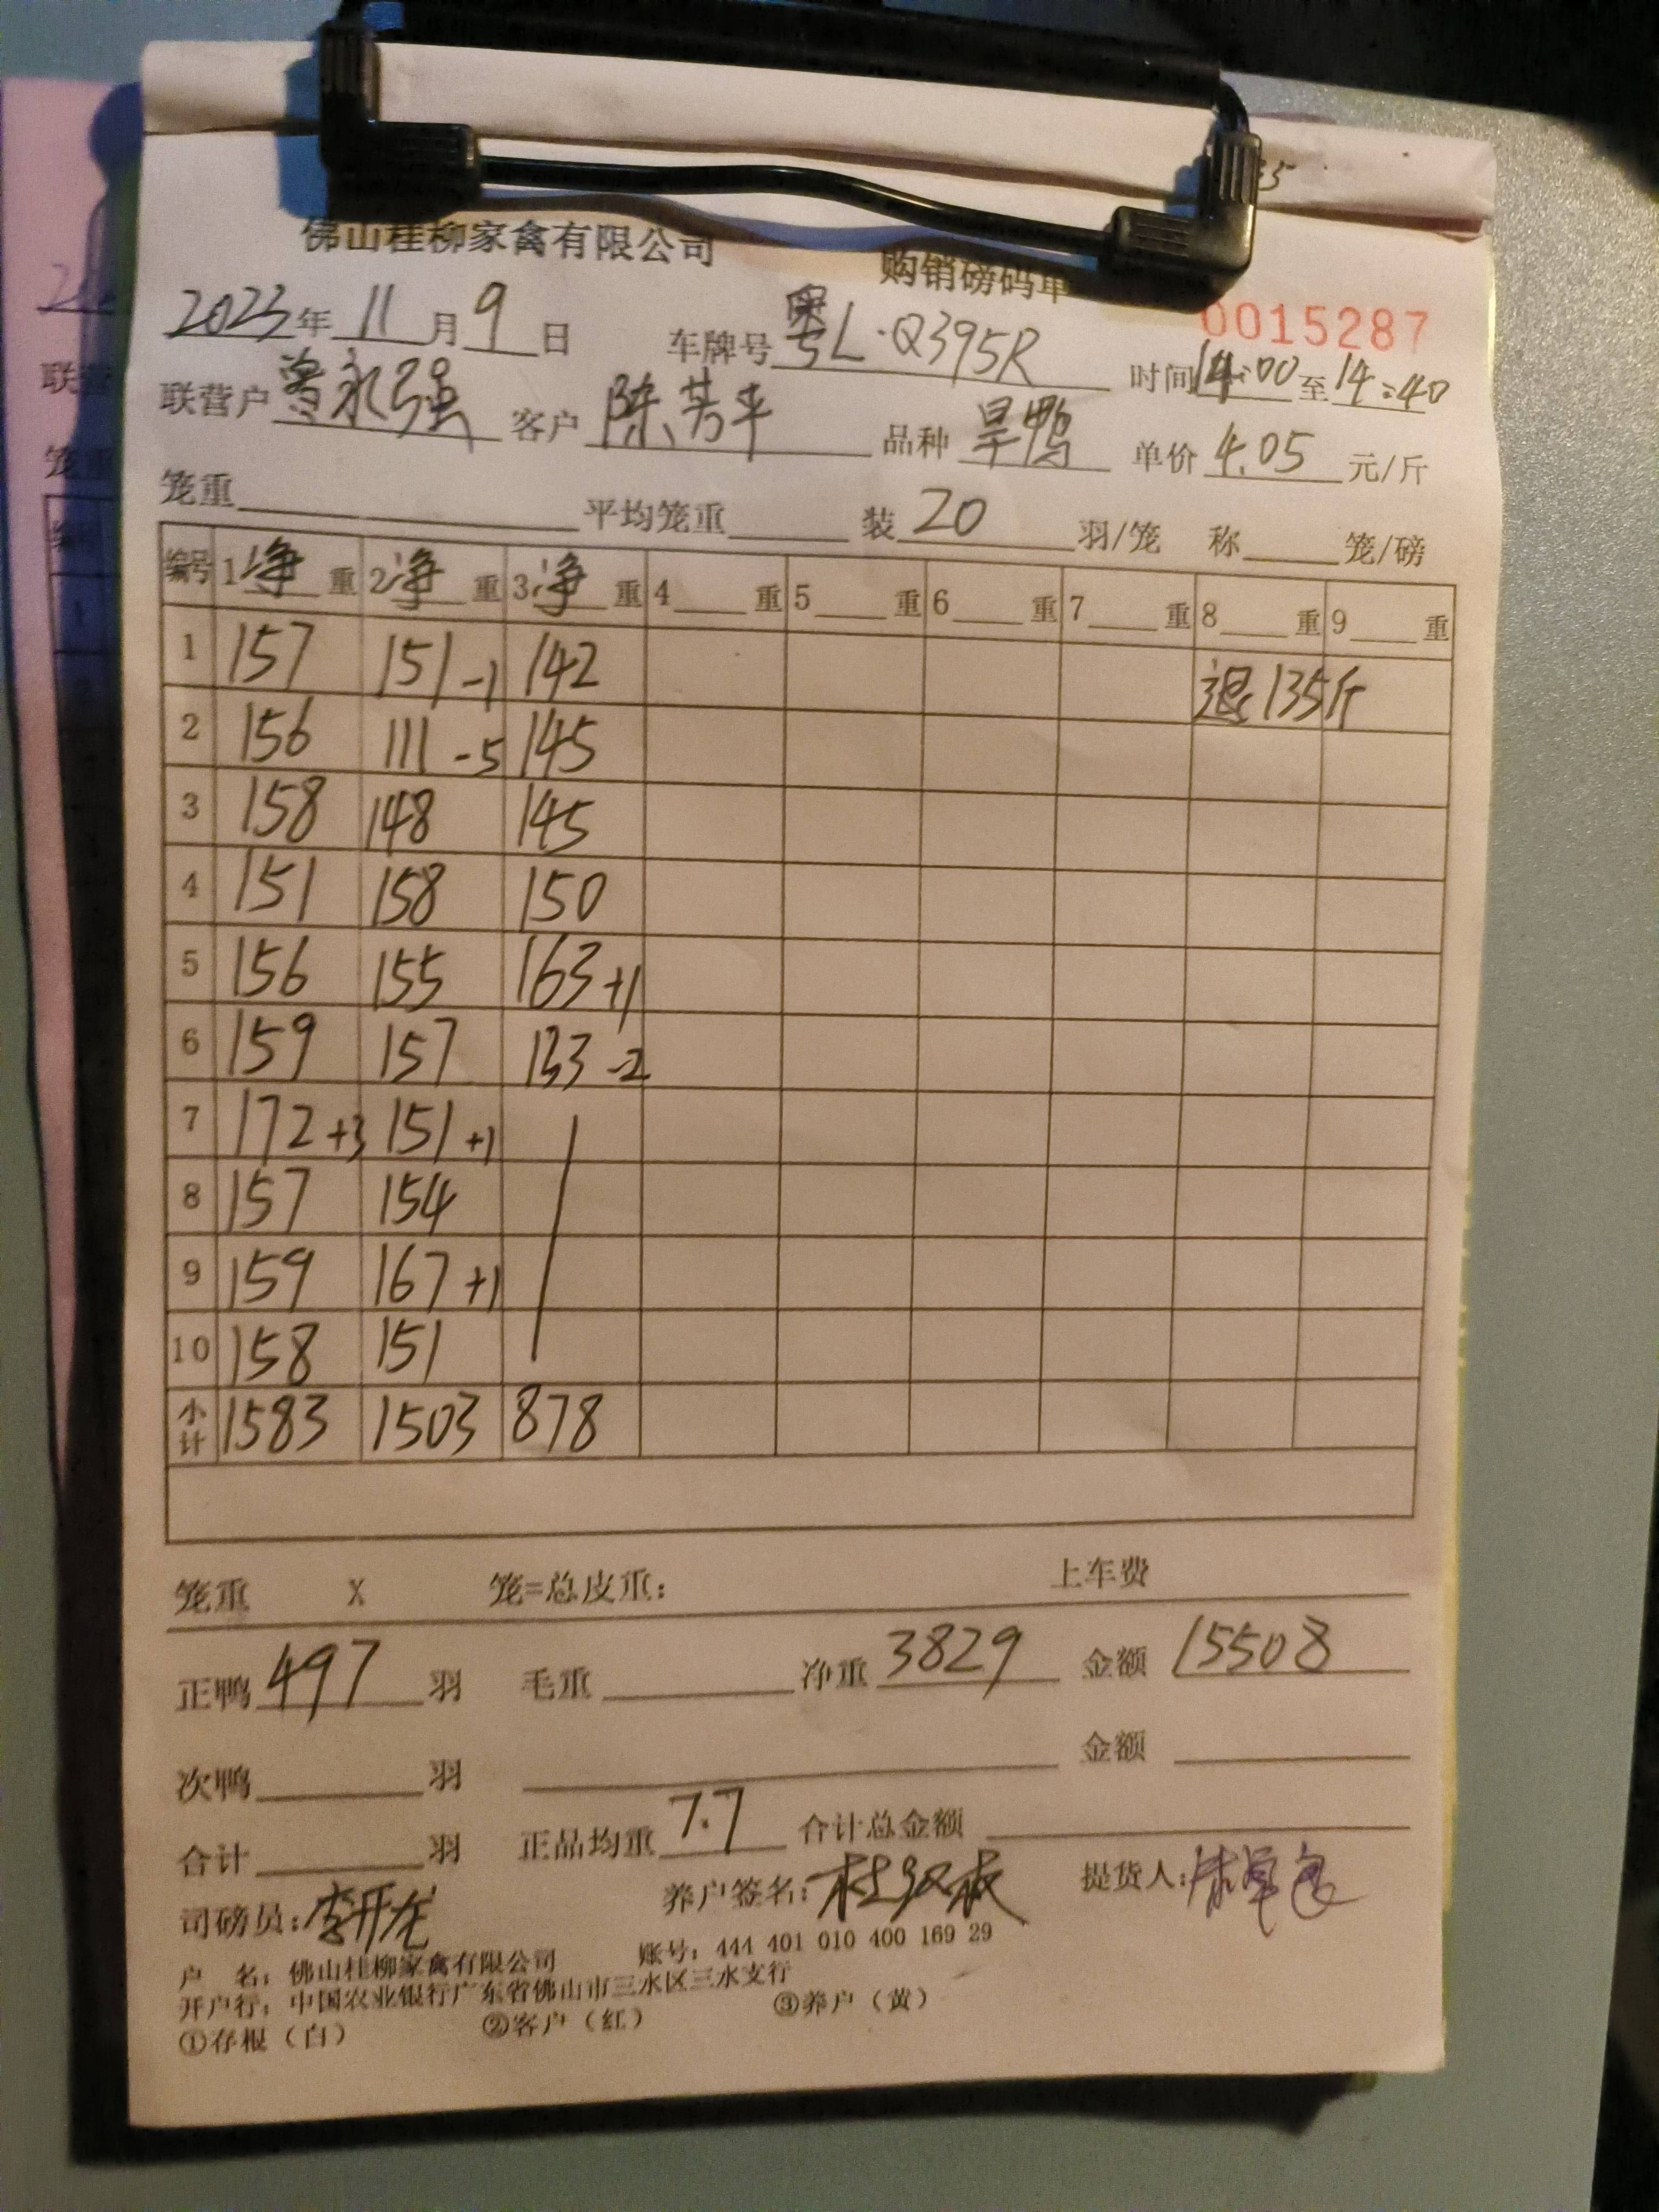 佛山桂柳家禽有限公司 购销磅码单
0015287
2023年 11 月 9 日 车牌号 粤L·Q395R 时间 14:00 至 14:40
联营户 曾永强 客户 陈芳平 品种 旱鸭 单价 4.05 元/斤
笼重 平均笼重 装 20 羽/笼 称 笼/磅
编号 1 净 重 2 净 重 3 净 重 4 重 5 重 6 重 7 重 8 重 9 重
1 157 151 -1 142 退135斤
2 156 111 -5 145
3 158 148 145
4 151 158 150
5 156 155 163 +1
6 159 157 133 -2
7 172 +3 151 +1
8 157 154
9 159 167 +1
10 158 151
小计 1583 1503 878
笼重 X 笼=总皮重: 上车费
正鸭 497 羽 毛重 净重 3829 金额 15508
次鸭 羽 金额
合计 羽 正品均重 7.7 合计总金额
司磅员: 李开龙 养户签名: 提货人:
户 名: 佛山桂柳家禽有限公司 账号: 444 401 010 400 169 29
开户行: 中国农业银行广东省佛山市三水区三水支行
①存根（白） ②客户（红） ③养户（黄）